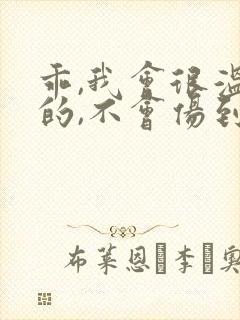 乖,我會很溫
的,不會傷到
布莱恩·李·奧